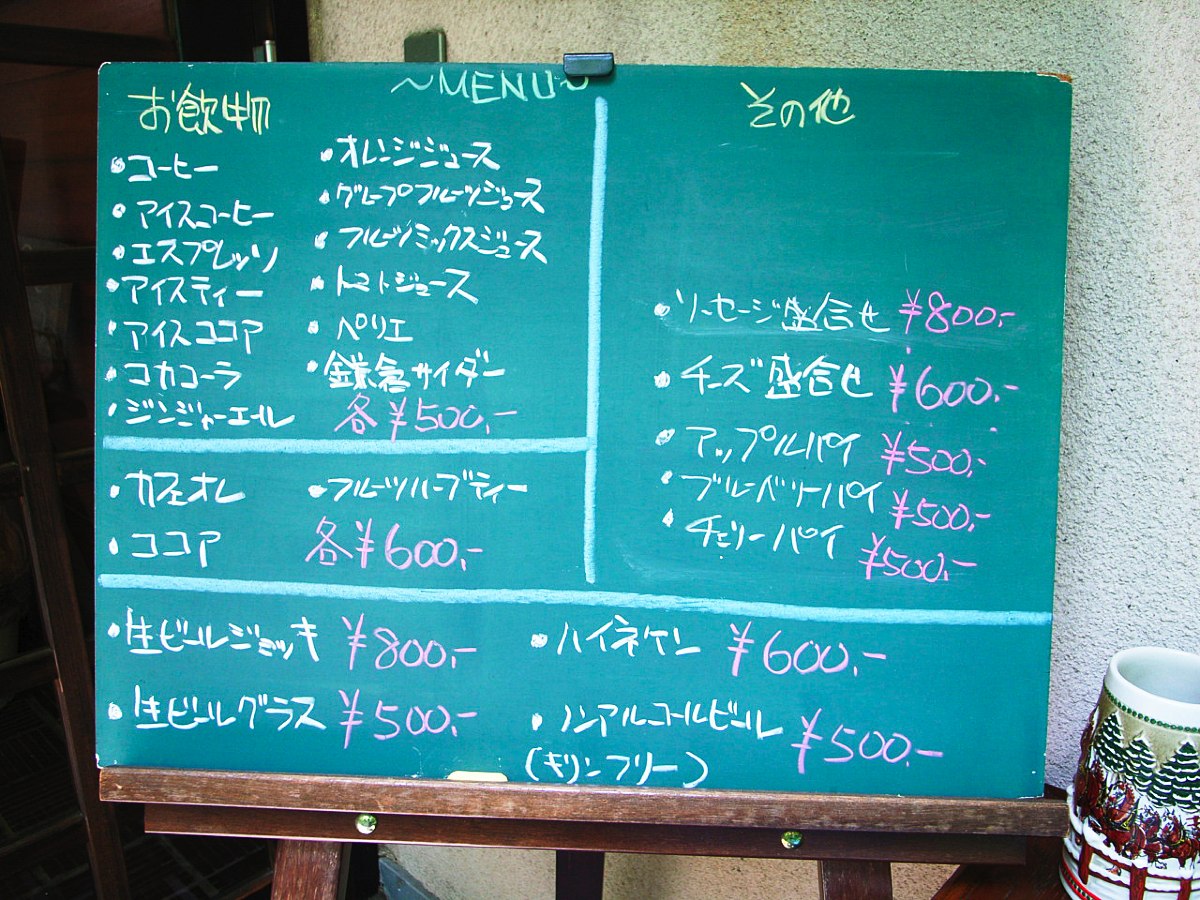 ~MENU~
お飲物
・コーヒー
・アイスコーヒー
・エスプレッソ
・アイスティー
・アイスココア
・コカコーラ
・ジンジャーエール
・オレンジジュース
・グレープフルーツジュース
・フルーツミックスジュース
・トマトジュース
・ペリエ
・鎌倉サイダー
各¥500,-
・カフェオレ
・ココア
・フルーツハーブティー
各¥600,-
その他
・ソーセージ盛合せ ¥800,-
・チーズ盛合せ ¥600,-
・アップルパイ ¥500,-
・ブルーベリーパイ ¥500,-
・チェリーパイ ¥500,-
・生ビールジョッキ ¥800,-
・生ビールグラス ¥500,-
・ハイネケン ¥600,-
・ノンアルコールビール ¥500,-
(キリンフリー)